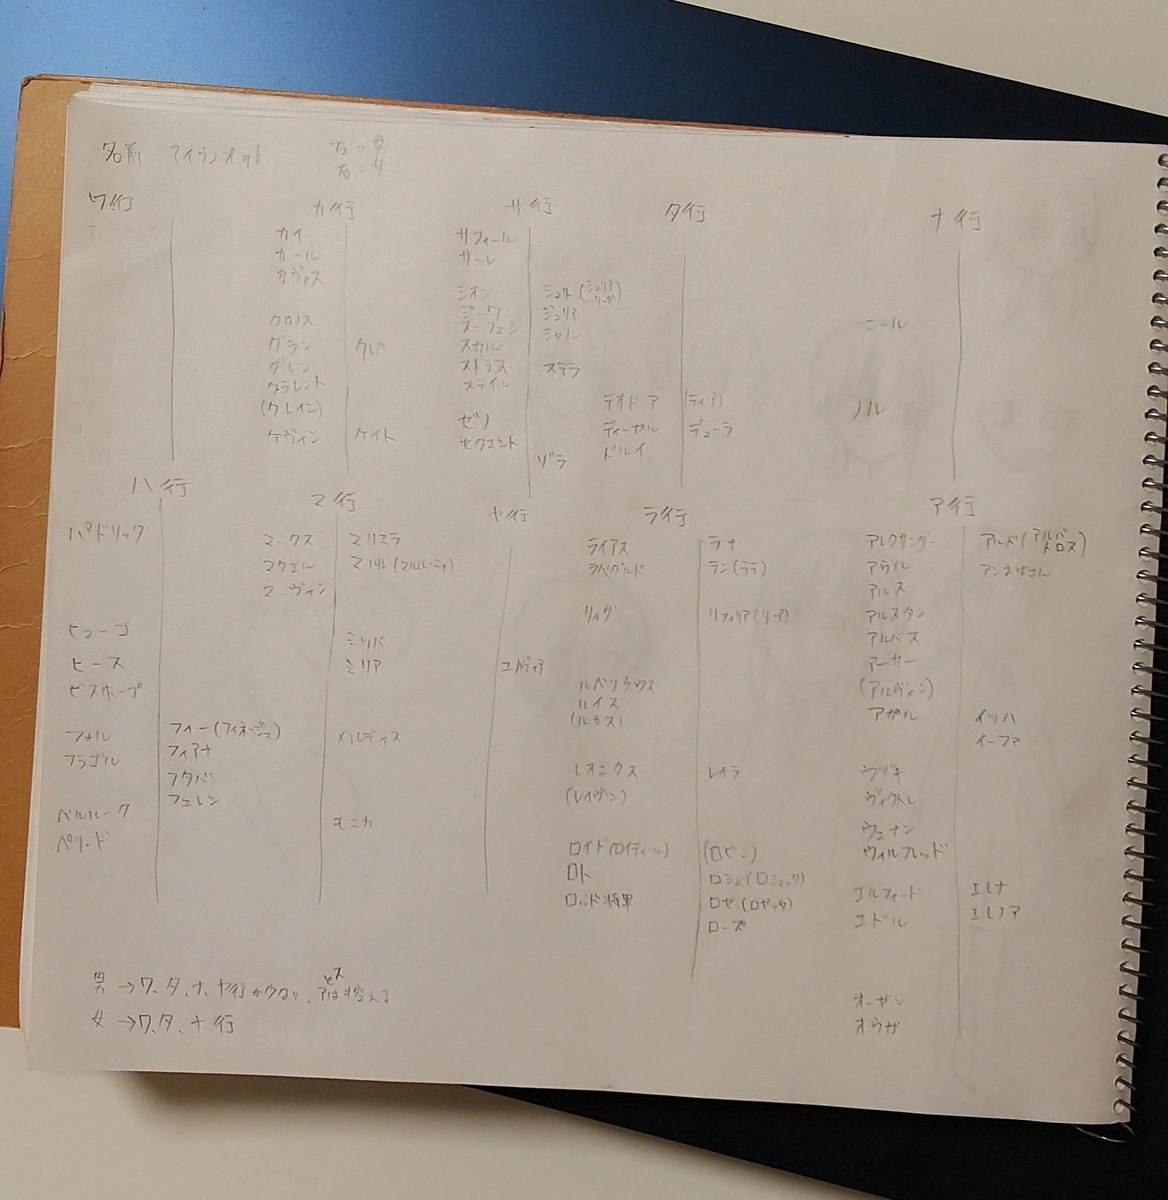 名前 アイウンオ順
左=男
右=女
ワ行
カ行
カイ
カール
カヴァス
クロノス
グラン
グレン
クラレント
(クレイン)
ケヴィン ケイト
サ行
サフィール
サーレ
シオン
ジーク ジュリア
スーフェン シャノン
スカル
ストラス ステラ
ステイル
ゼノ
セクエント
ゾラ
タ行
テオドア (ティア)
ディーゼル デューラ
ドルイ
ナ行
ニール
ノル
ハ行
パドリック
ヒューゴ
ヒース
ビスホープ
フォル フィー(フィネージュ)
フラゴル フィアナ
フタバ
フェレン
ベルルーク
ペリード
マ行
マークス マリエラ
マクエル
マーヴィン
ミリバ
ミリア
メルディス
モニカ
ヤ行
ユグヴィア
ライ行
ライアス ラナ
ラベグルド ラン(ララ)
リィダ リフィリア(リーア)
ルベリウウス
ルイス
(ルカス)
レオニクス レイラ
(レイヴン)
ロイド(ロイディール) (ロビン)
ロト ロシュ(ロシェック)
ロッド将軍 ロゼ(ロゼッタ)
ローズ
ア行
アレクサンダー アルド(アルバ メロス)
アウル アンおばさん
アルス
アルスタン
アルバス
アーサー
(アルヴィン)
アガル イツハ
イーファ
ウヅキ
ヴィクトル
ウェナン
ウィルフレッド
エルフィード エレナ
エドル エレノア
オーゼン
オウガ
男→ワ、タ、ナ、ヤ行が少なり、アは控える
とス
女→ワ、タ、ナ行